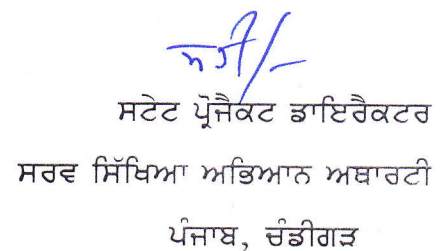 ਸਹੀ/-
ਸਟੇਟ ਪ੍ਰੋਜੈਕਟ ਡਾਇਰੈਕਟਰ
ਸਰਵ ਸਿੱਖਿਆ ਅਭਿਆਨ ਅਥਾਰਟੀ
ਪੰਜਾਬ, ਚੰਡੀਗੜ